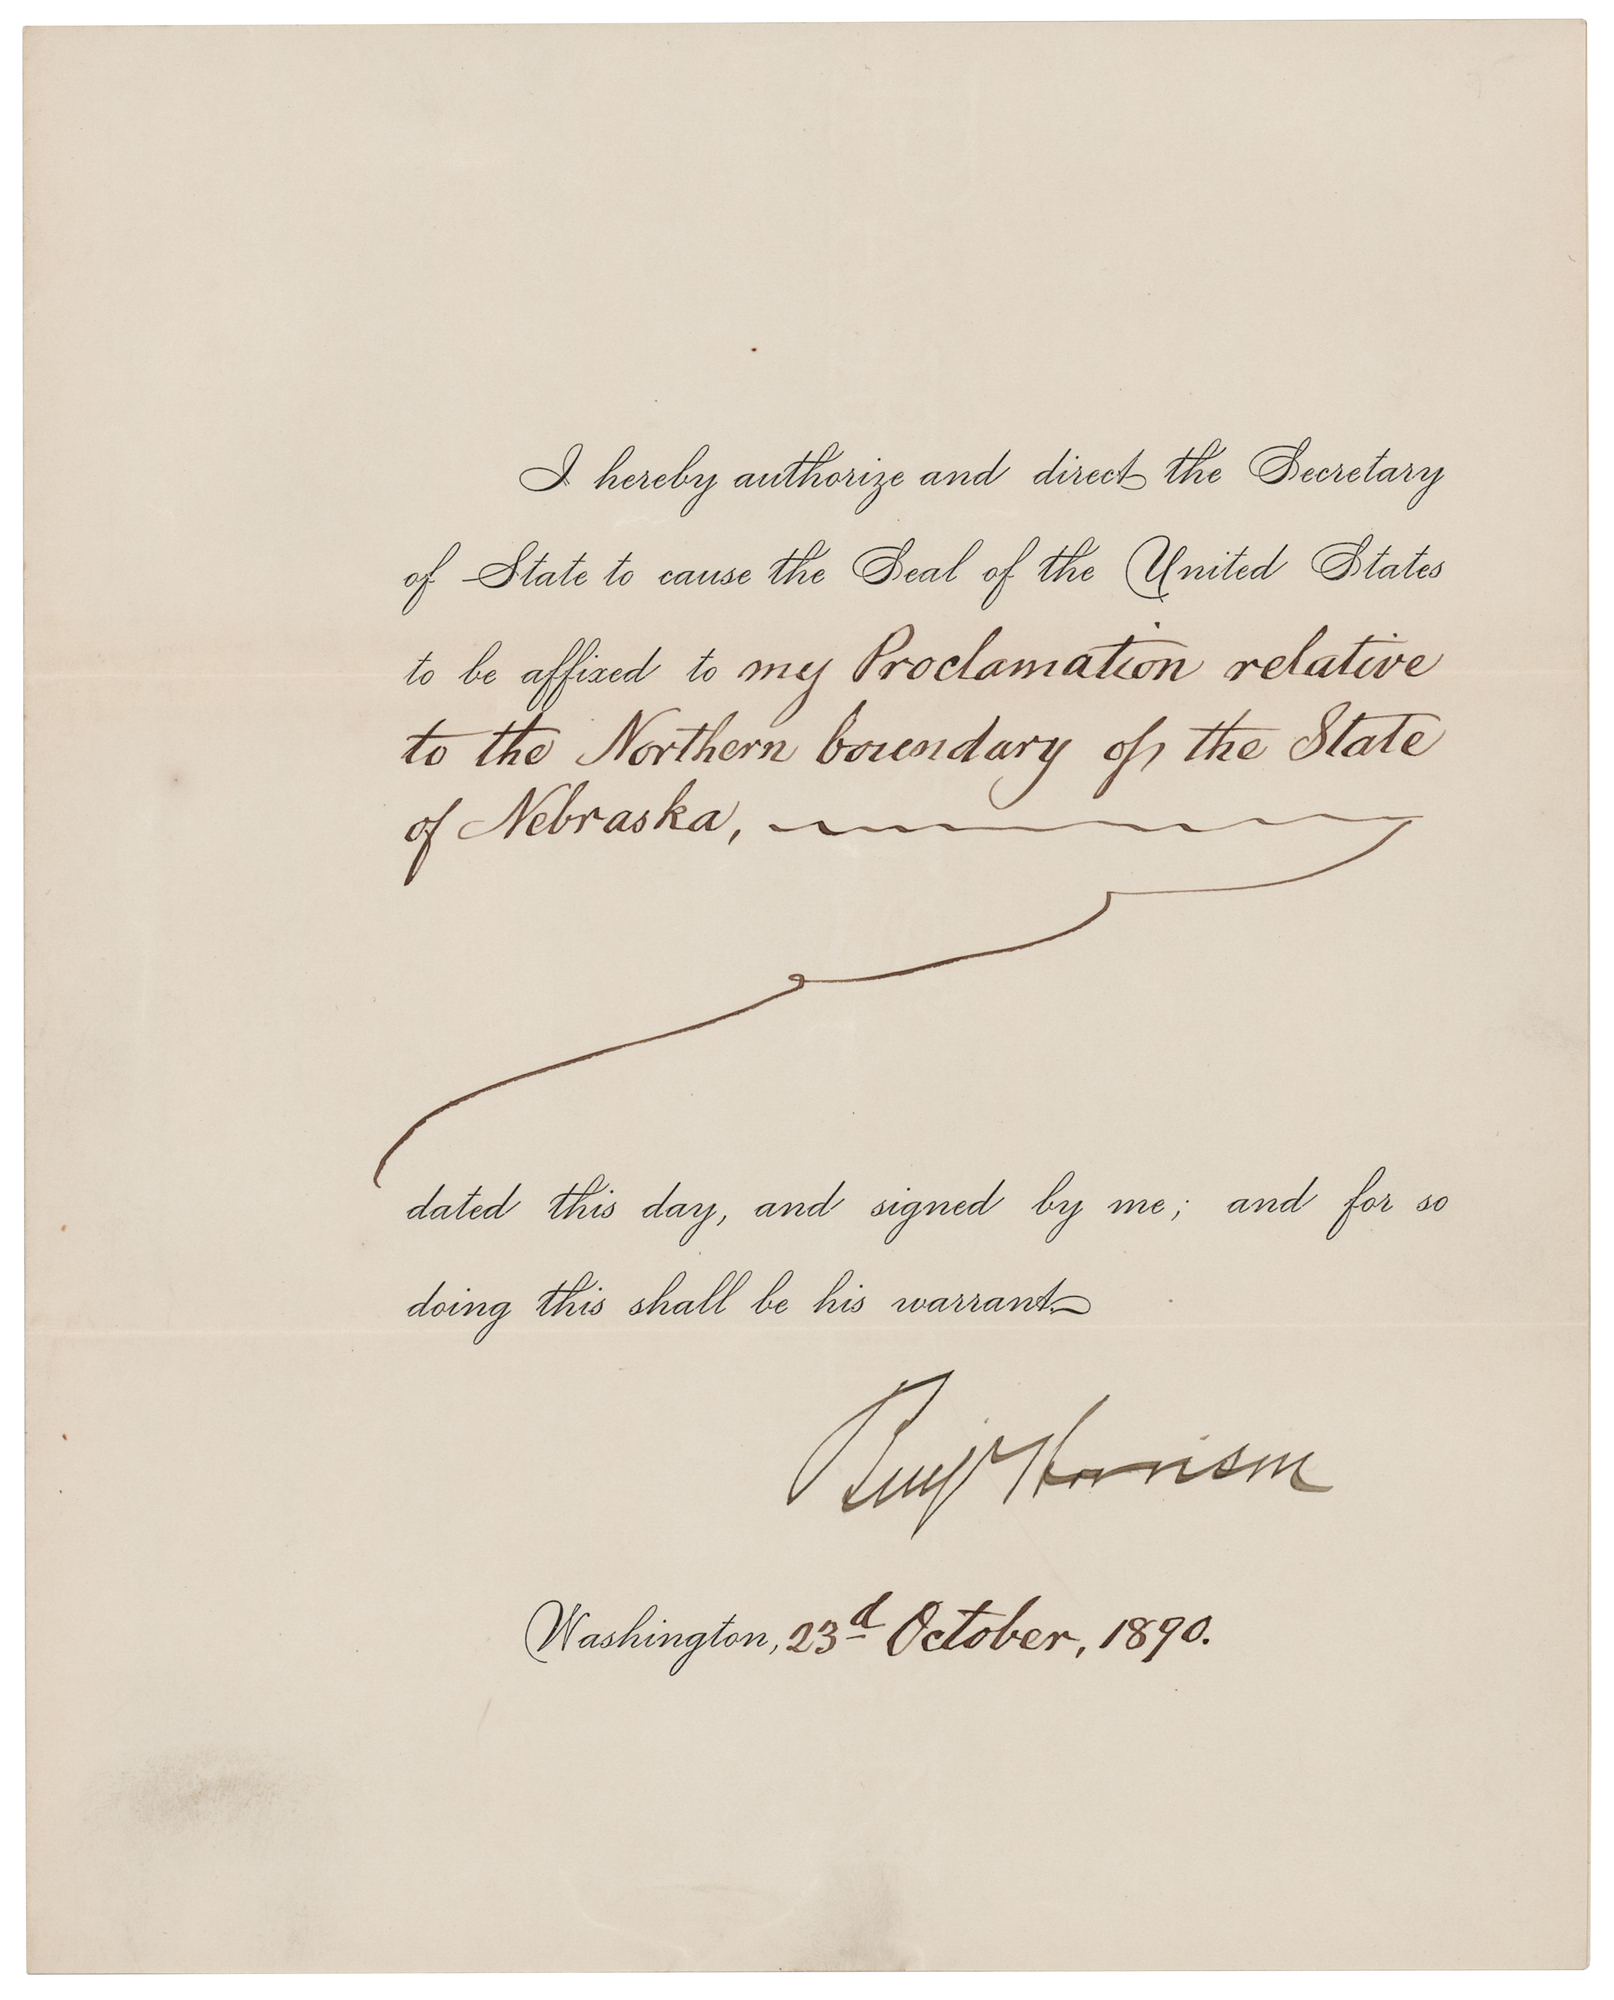 I hereby authorize and direct the Secretary
of State to cause the Seal of the United States
to be affixed to my Proclamation relative
to the Northern boundary of the State
of Nebraska,
dated this day, and signed by me; and for so
doing this shall be his warrant.
Benj Harrison
Washington, 23d October, 1890.